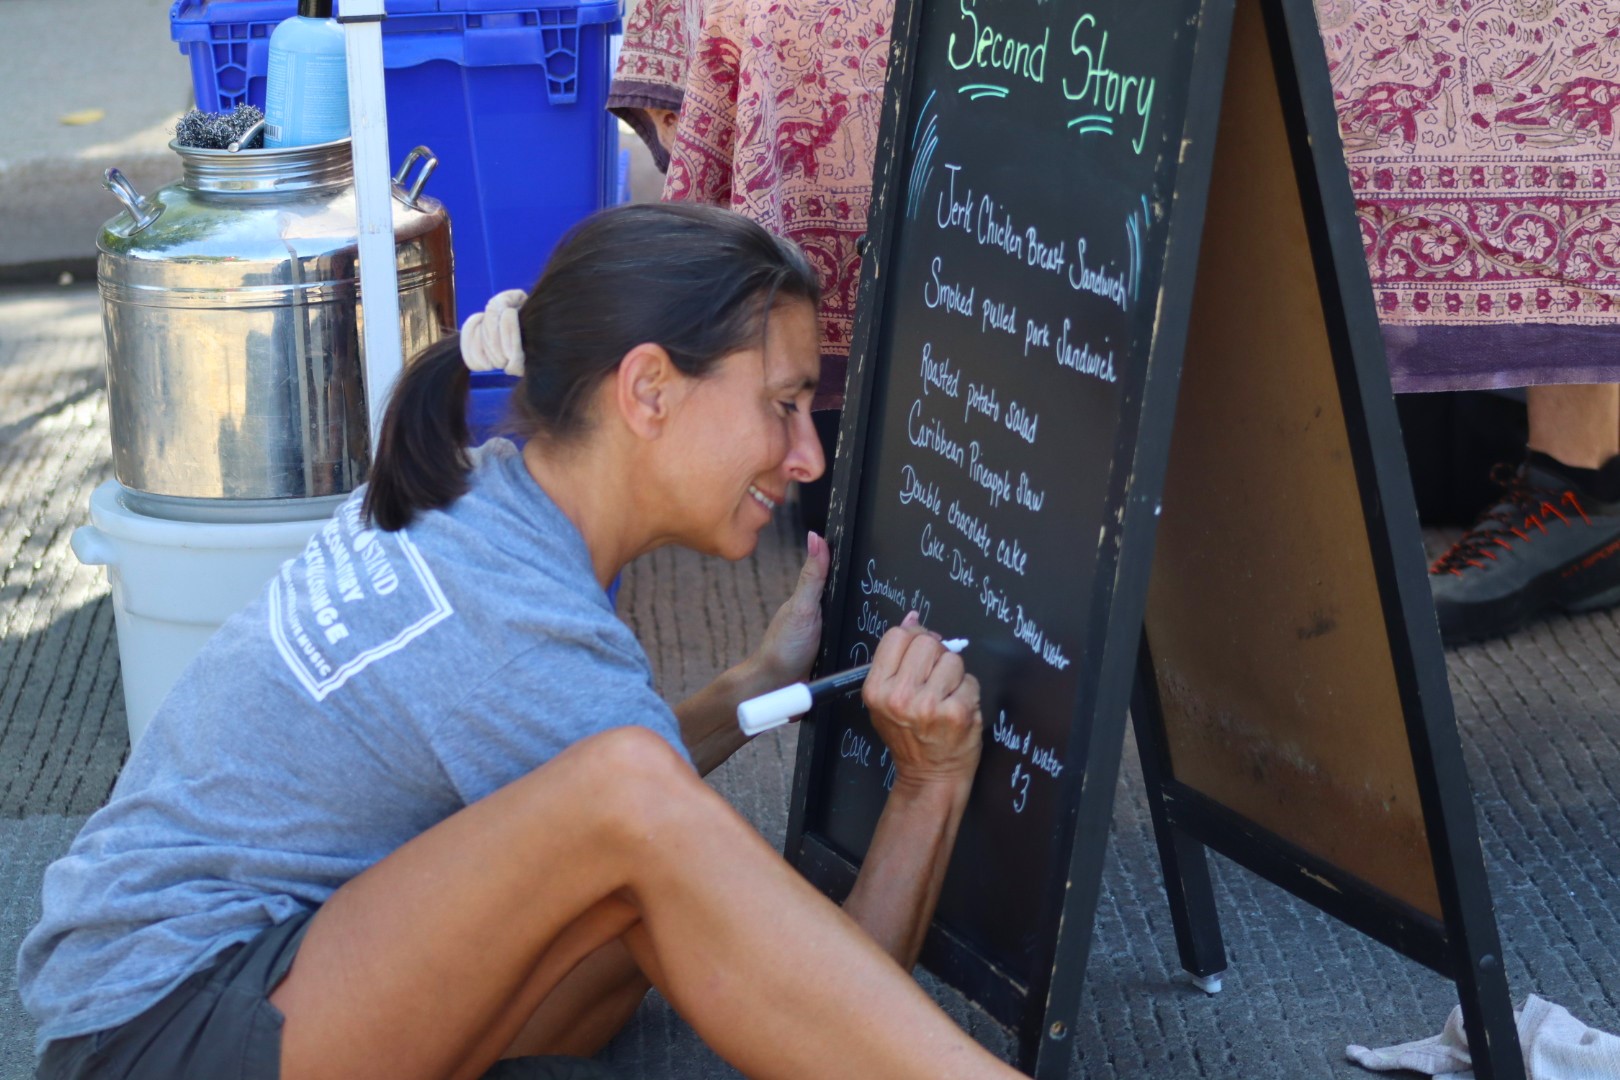 Second Story
Jerk Chicken Breast Sandwich
Smoked pulled pork Sandwich
Roasted potato salad
Caribbean Pineapple Slaw
Double chocolate cake
Coke · Diet · Sprite · Bottled water
Sandwich $12
Sides
Cake $10
Sodas & water
$3
STAND
MUSIC